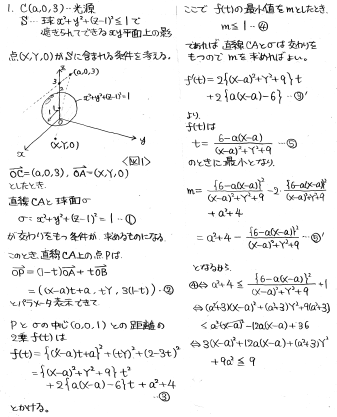 1. C(a,0,3)…光源
S…球 x²+y²+(z-1)²≦1で
遮ぎられてできるxy平面上の影
点(X,Y,0)がSに含まれる条件を考える。
z
(a,0,3)
3
x²+y²+(z-1)²=1
1
y
x
(X,Y,0)
<図1>
OC=(a,0,3), OA=(X,Y,0)
としたとき.
直線CAと球面σ
σ: x²+y²+(z-1)²=1 …①
が交わりをもつ条件が、求めるものになる
このとき,直線CA上の点Pは.
OP=(1-t)OA+tOC
=((X-a)t+a, tY, 3(1-t))…②
とパラメータ表示できて.
Pとσの中心(0,0,1)との距離の
2乗f(t)は
f(t)={(X-a)t+a}²+(tY)²+(2-3t)²
={(X-a)²+Y²+9}t²
+2{a(X-a)-6}t+a²+4
…③
とかける。
ここで f(t)の最小値をmとしたとき.
m≦1…④
であれば 直線CAとσは交わりを
もつので mを求めればよい。
f'(t)=2{(X-a)²+Y²+9}t
+2{a(X-a)-6}…③'
より.
f(t)は
t=6-a(X-a)/(X-a)²+Y²+9…⑤
のときに最小となり.
m={6-a(X-a)}²/(X-a)²+Y²+9-2·{6-a(X-a)}²/(X-a)²+Y²+9
+a²+4
=a²+4-{6-a(X-a)}²/(X-a)²+Y²+9…⑤'
となるから.
④⇔a²+4≦{6-a(X-a)}²/(X-a)²+Y²+9+1
⇔(a²+3)(X-a)²+(a²+3)Y²+9(a²+3)
≦a²(X-a)²-12a(X-a)+36
⇔3(X-a)²+12a(X-a)+(a²+3)Y²
+9a²≦9